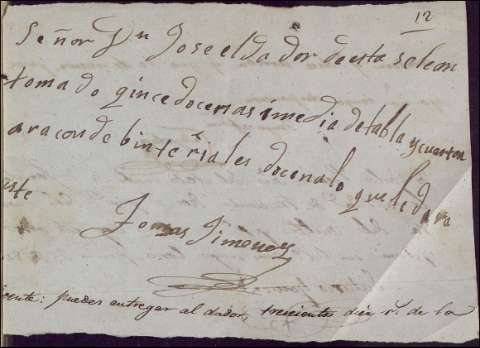 12
Señor Dn Jose el dador de esta se lean
tomado qince docenas i media de tabla y cuarton
a racon de binte rriales docena lo que le dara
uste
Tomas Jimenez
puedes entregar al dador, trecientos diez r.s de la